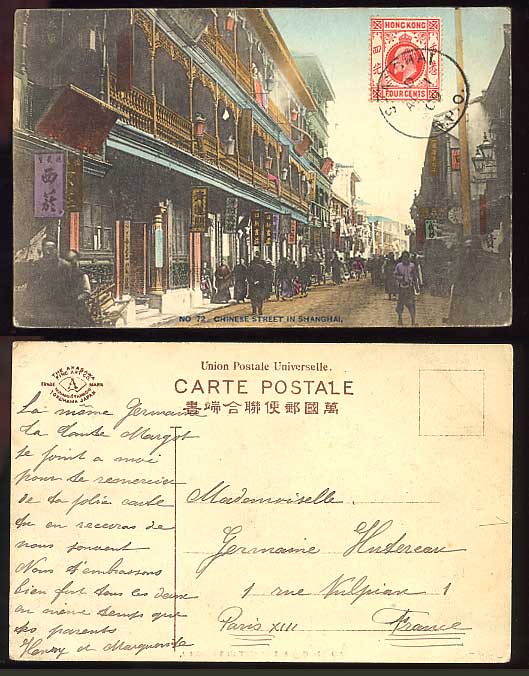 HONG KONG
FOUR CENTS
SHANGHAI
B.P.O.
西菸
NO 72. CHINESE STREET IN SHANGHAI.
THE AKANOWA
FINE ART CO.
TRADE MARK
A
YOKOHAMA JAPAN
Union Postale Universelle.
CARTE POSTALE
萬國郵便聯合端書
La même Germaine
Ta tante Margot
se joint a moi
pour te remercier
de ta jolie carte
tu en recevras de
nous souvent
Nous t'embrassons
bien fort tous les deux
en même temps que
tes parents
Henry et Marguerite
Mademoiselle
Germaine Hutereau
1 rue Vulpian 1
Paris XIII France